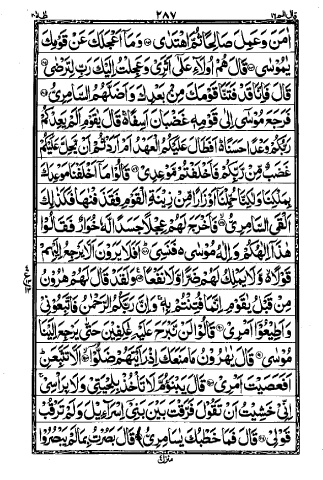 قَالَ اَلَمْ ١٦ ٢٨٧ طٰهٰ ٢٠
اٰمَنَ وَعَمِلَ صَالِحًا ثُمَّ اهْتَدٰى ۝ وَمَآ اَعْجَلَكَ عَنْ قَوْمِكَ
يٰمُوْسٰى ۝ قَالَ هُمْ اُولَآءِ عَلٰٓى اَثَرِيْ وَعَجِلْتُ اِلَيْكَ رَبِّ لِتَرْضٰى ۝
قَالَ فَاِنَّا قَدْ فَتَنَّا قَوْمَكَ مِنْۢ بَعْدِكَ وَاَضَلَّهُمُ السَّامِرِيُّ ۝
فَرَجَعَ مُوْسٰٓى اِلٰى قَوْمِهٖ غَضْبَانَ اَسِفًا قَالَ يٰقَوْمِ اَلَمْ يَعِدْكُمْ
رَبُّكُمْ وَعْدًا حَسَنًا اَفَطَالَ عَلَيْكُمُ الْعَهْدُ اَمْ اَرَدْتُّمْ اَنْ يَّحِلَّ عَلَيْكُمْ
غَضَبٌ مِّنْ رَّبِّكُمْ فَاَخْلَفْتُمْ مَّوْعِدِيْ ۝ قَالُوْا مَآ اَخْلَفْنَا مَوْعِدَكَ
بِمَلْكِنَا وَلٰكِنَّا حُمِّلْنَآ اَوْزَارًا مِّنْ زِيْنَةِ الْقَوْمِ فَقَذَفْنٰهَا فَكَذٰلِكَ
اَلْقَى السَّامِرِيُّ ۝ فَاَخْرَجَ لَهُمْ عِجْلًا جَسَدًا لَّهٗ خُوَارٌ فَقَالُوْا
هٰذَآ اِلٰهُكُمْ وَاِلٰهُ مُوْسٰى ۥ فَنَسِيَ ۝ اَفَلَا يَرَوْنَ اَلَّا يَرْجِعُ اِلَيْهِمْ
قَوْلًا وَّلَا يَمْلِكُ لَهُمْ ضَرًّا وَّلَا نَفْعًا ۝ وَلَقَدْ قَالَ لَهُمْ هٰرُوْنُ
مِنْ قَبْلُ يٰقَوْمِ اِنَّمَا فُتِنْتُمْ بِهٖ وَاِنَّ رَبَّكُمُ الرَّحْمٰنُ فَاتَّبِعُوْنِيْ
وَاَطِيْعُوْٓا اَمْرِيْ ۝ قَالُوْا لَنْ نَّبْرَحَ عَلَيْهِ عٰكِفِيْنَ حَتّٰى يَرْجِعَ اِلَيْنَا
مُوْسٰى ۝ قَالَ يٰهٰرُوْنُ مَا مَنَعَكَ اِذْ رَاَيْتَهُمْ ضَلُّوْٓا ۝ اَلَّا تَتَّبِعَنِ
اَفَعَصَيْتَ اَمْرِيْ ۝ قَالَ يَبْنَؤُمَّ لَا تَاْخُذْ بِلِحْيَتِيْ وَلَا بِرَاْسِيْ
اِنِّيْ خَشِيْتُ اَنْ تَقُوْلَ فَرَّقْتَ بَيْنَ بَنِيْٓ اِسْرَآءِيْلَ وَلَمْ تَرْقُبْ
قَوْلِيْ ۝ قَالَ فَمَا خَطْبُكَ يٰسَامِرِيُّ ۝ قَالَ بَصُرْتُ بِمَا لَمْ يَبْصُرُوْا